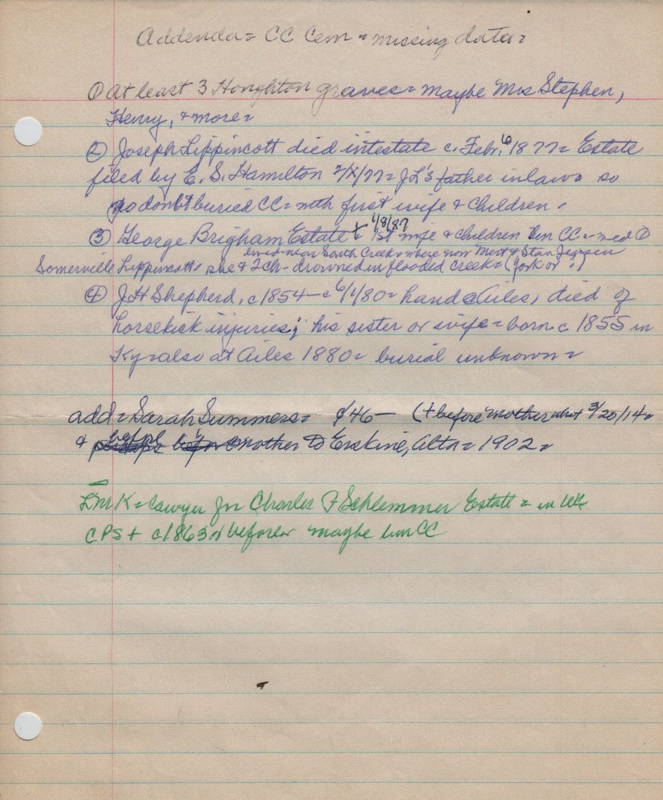 Addenda = CC Cem = missing data =
① At least 3 Houghton graves = maybe Mrs Stephen,
Henry, & more =
② Joseph Lippincott died intestate c. Feb. 6 1877 = Estate
filed by E. S. Hamilton = JL's father inlaw = so
no doubt buried CC = with first wife & children.
1/8/87
③ George Brigham Estate + 1st wife & children bur CC = med
lived near South Creek = where now & Stan
Somerville Lippincott = she & 2 Ch. drowned in flooded creek = (York or ?)
④ J H Shepherd, c1854 – c 6/1/80 = hand @ Ailes, died of
horsekick injuries; his sister or wife = born c 1855 in
Ky = also at Ailes 1880 = burial unknown =
add = Sarah Summers = '46 – (+ before mother's 3/20/14 =
& before mother to Erskine, Alta = 1902 =
= lawyer for Charles F Schlemmer Estate = in
CPS + c1863 & before maybe bur CC